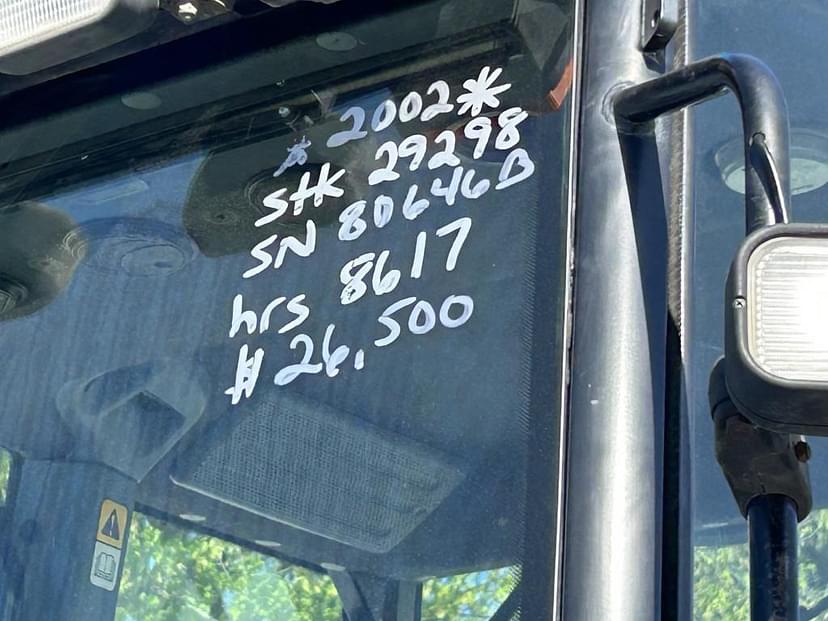 * 2002*
Stk 29298
SN 8D646B
hrs 8617
# 26,500